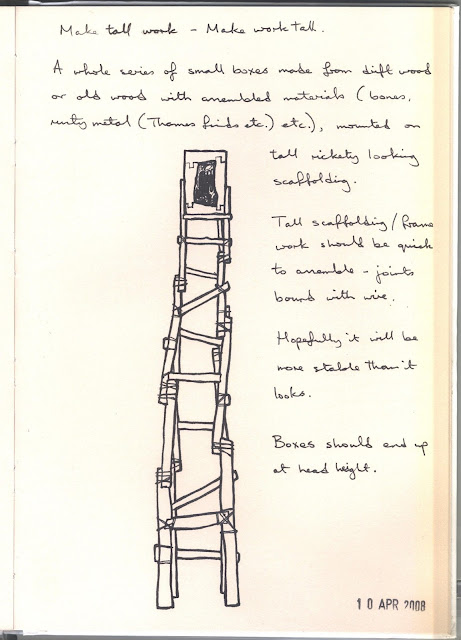 Make tall work – Make work tall.
A whole series of small boxes made from drift wood
or old wood with assembled materials (bones,
rusty metal (Thames finds etc.) etc.), mounted on
tall rickety looking
scaffolding.
Tall scaffolding/frame
work should be quick
to assemble – joints
bound with wire.
Hopefully it will be
more stable than it
looks.
Boxes should end up
at head height.
10 APR 2008